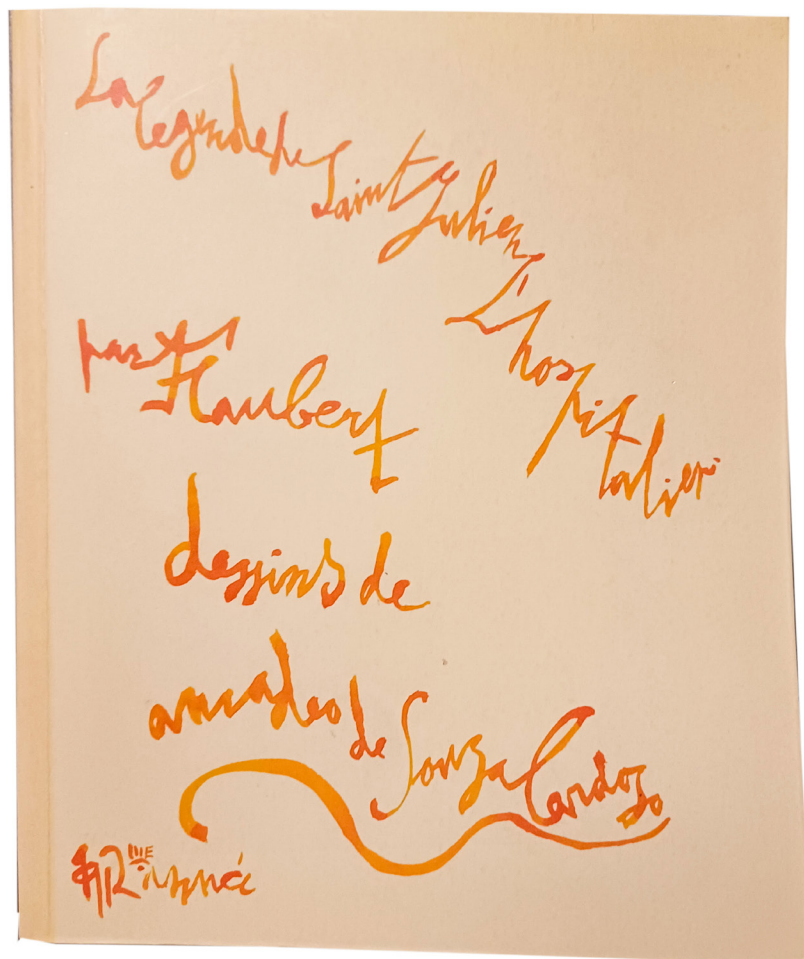 La legende de Saint Julien L'hospitalier
par Flaubert
dessins de
amadeo de Souza Cardozo